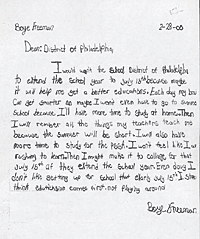 Benje Freeman 2-28-00
Dear: District of Philadelphia,
I would want the School District of Philadelphia
to extend the school year to July 15th because maybe
it will help me get a better education. Each day my brain
can get smarter so maybe I wont even have to go to summer
School because I'll have more time to study at home. Then
I will remember all the things my teaching teach me
because the summer will be short. I will also have
more time to study for the test. I won't feel like I'm
rushing to learn. Then I might make it to college for that
July 15th if they extend the school year. Even doug I
don't like getting up for school that early July 15th I still
think education comes first not playing around
Freeman